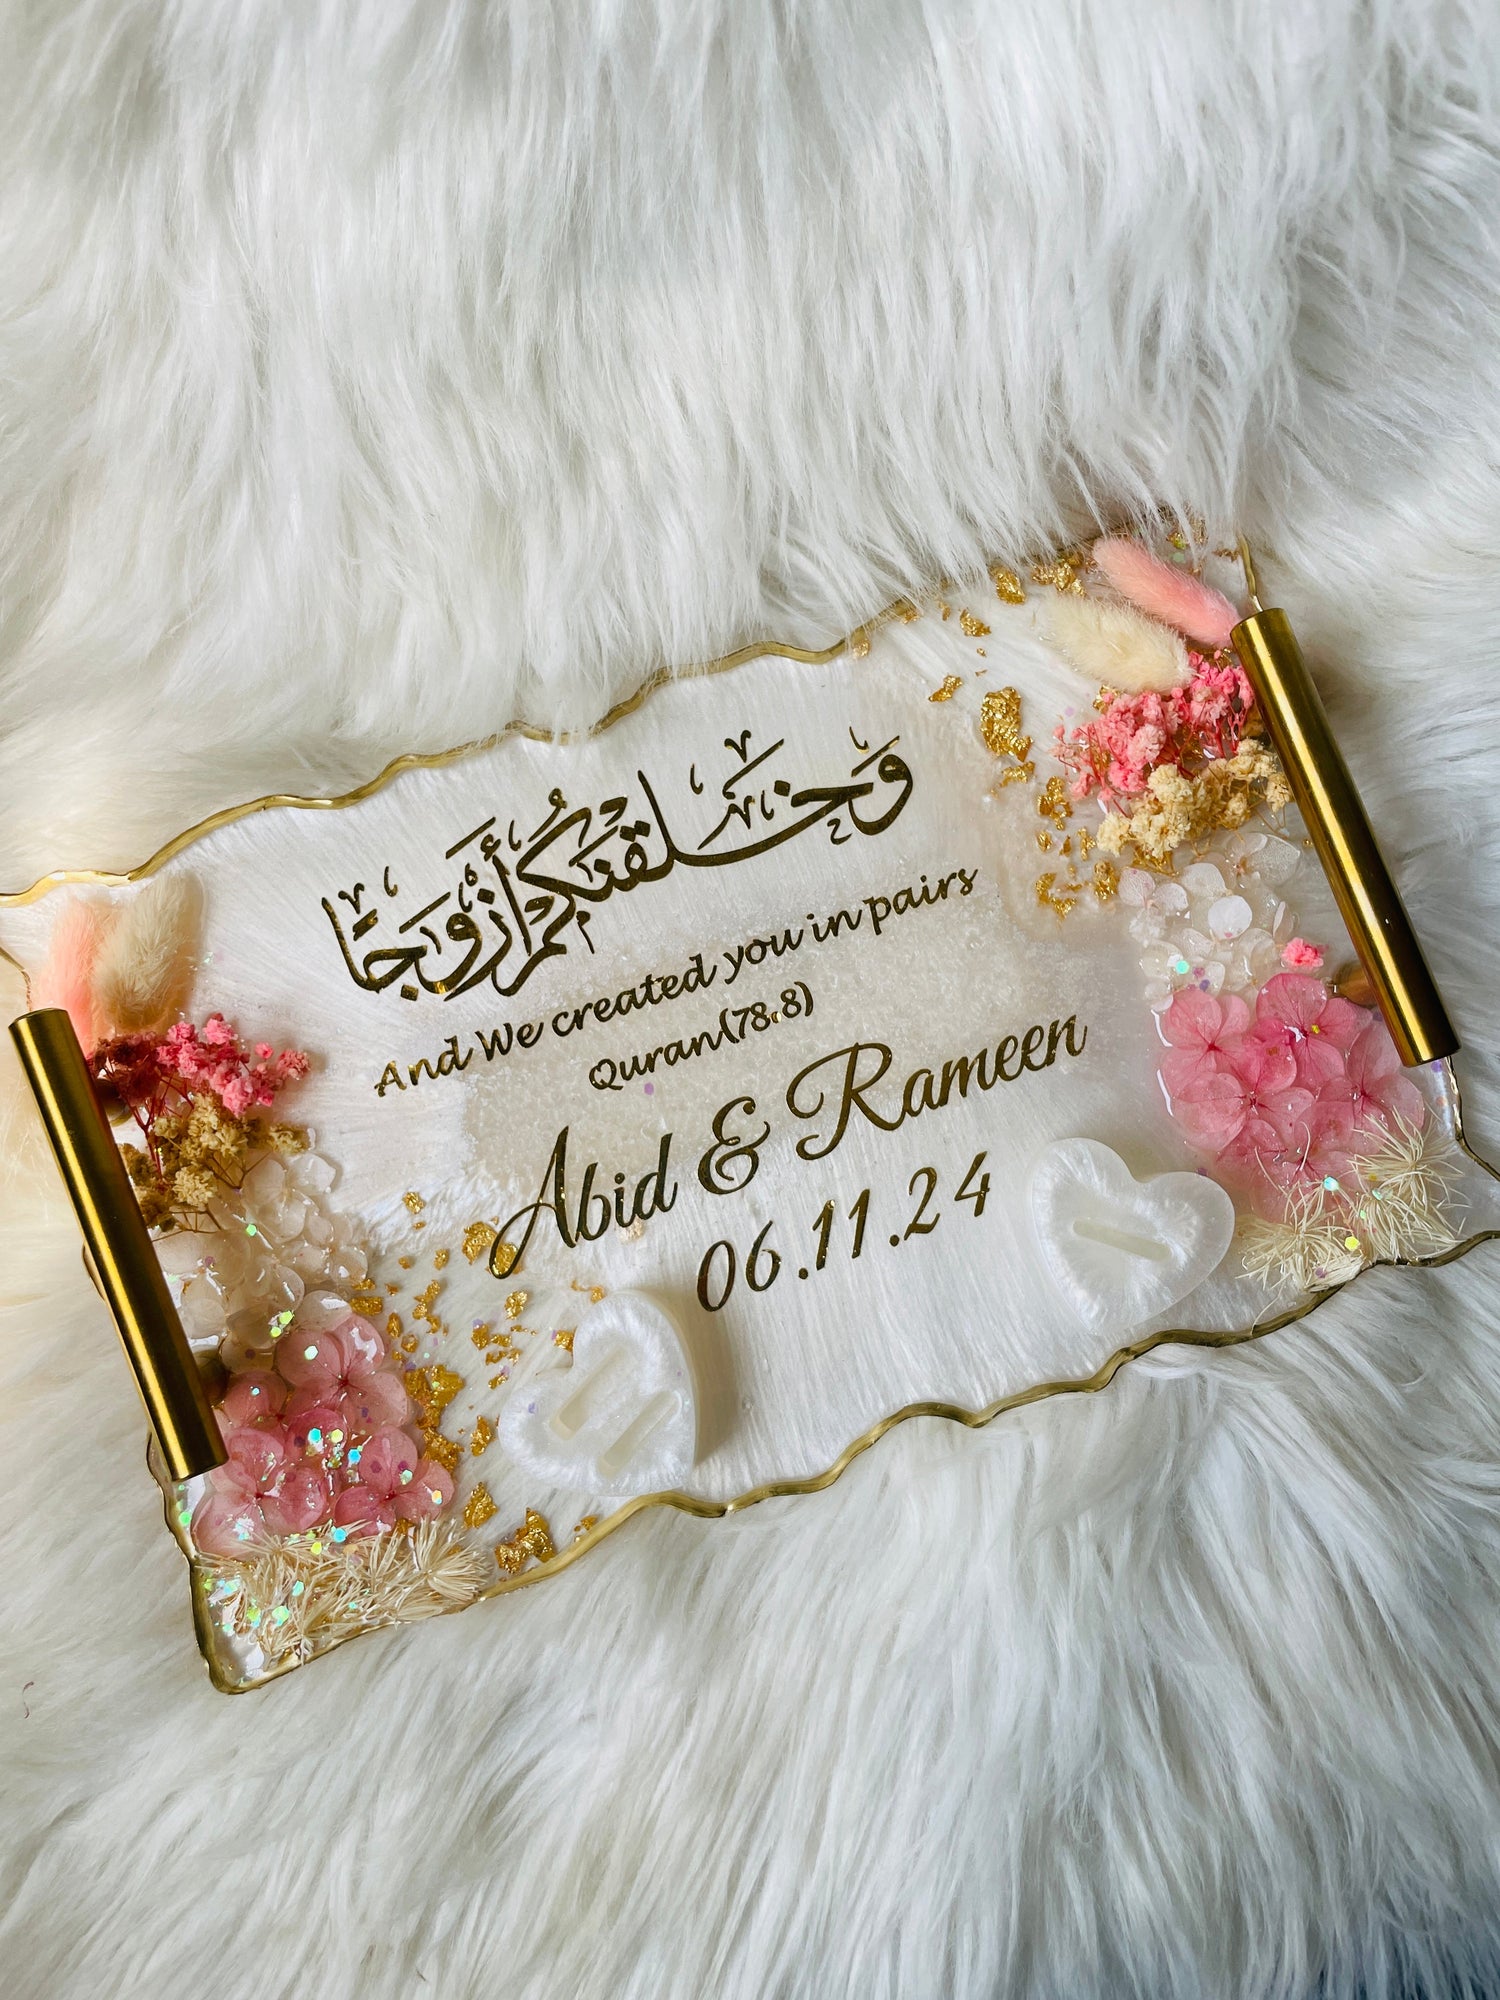 وَخَلَقْنَٰكُمْ أَزْوَٰجًا
And We created you in pairs
Quran(78:8)
Abid & Rameen
06.11.24